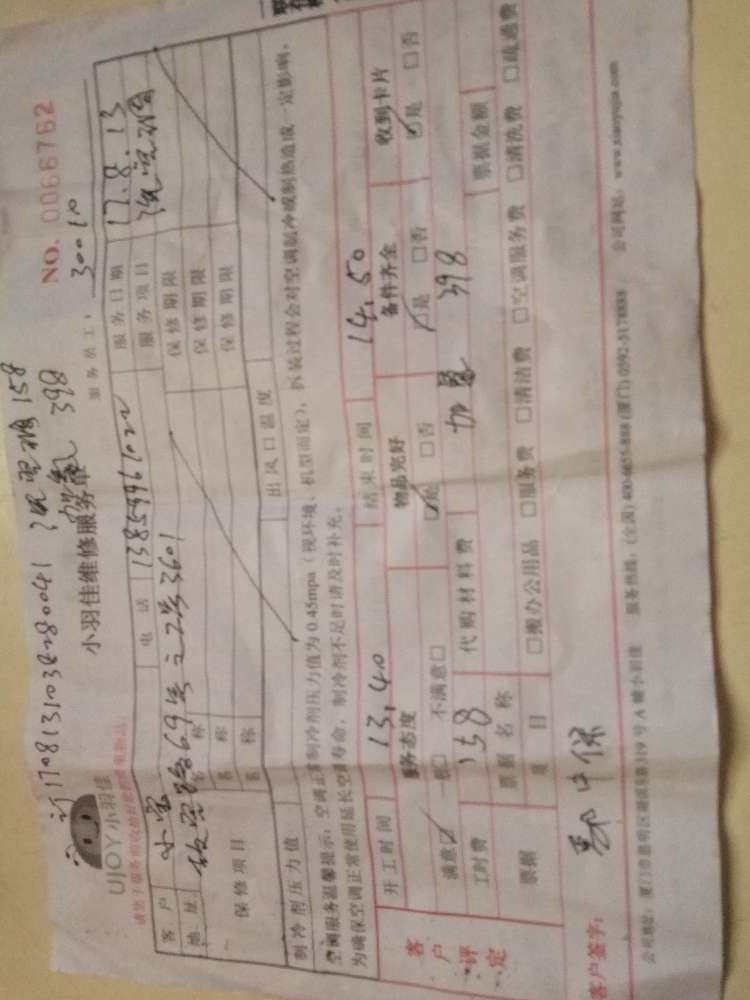 1708131032280041 158
398
UJOY小羽佳
小羽佳维修服务单
NO. 0066762
服务员工： 30010
客户 小宝
电话 13859961022
服务日期 17.8.13
地址 69号之2号3601
服务项目
保修项目
名称
保修期限
名称
保修期限
名称
保修期限
制冷剂压力值
出风口温度
空调服务温馨提示：空调正常制冷剂压力值为0.45mpa（视环境、机型而定），拆装过程会对空调制冷或制热造成一定影响，
为确保空调正常使用延长空调寿命，制冷剂不足时请及时补充。
开工时间 13.40
结束时间 14.50
客户评定
服务态度
物品完好
备件齐全
收到卡片
满意☑ 一般□ 不满意□
☑是 □否
☑是 □否
☑是 □否
工时费 158
代购材料费
398
票据
票据名称
票据金额
项目
□搬办公用品 □服务费 □清洁费 □空调服务费 □清洗费 □疏通费
客户签字：
公司地址：厦门市思明区 319号A幢小羽佳
服务热线：(全国)400-6655-888 (厦门)0592-5178888
公司网站：www.xiaoyujia.com